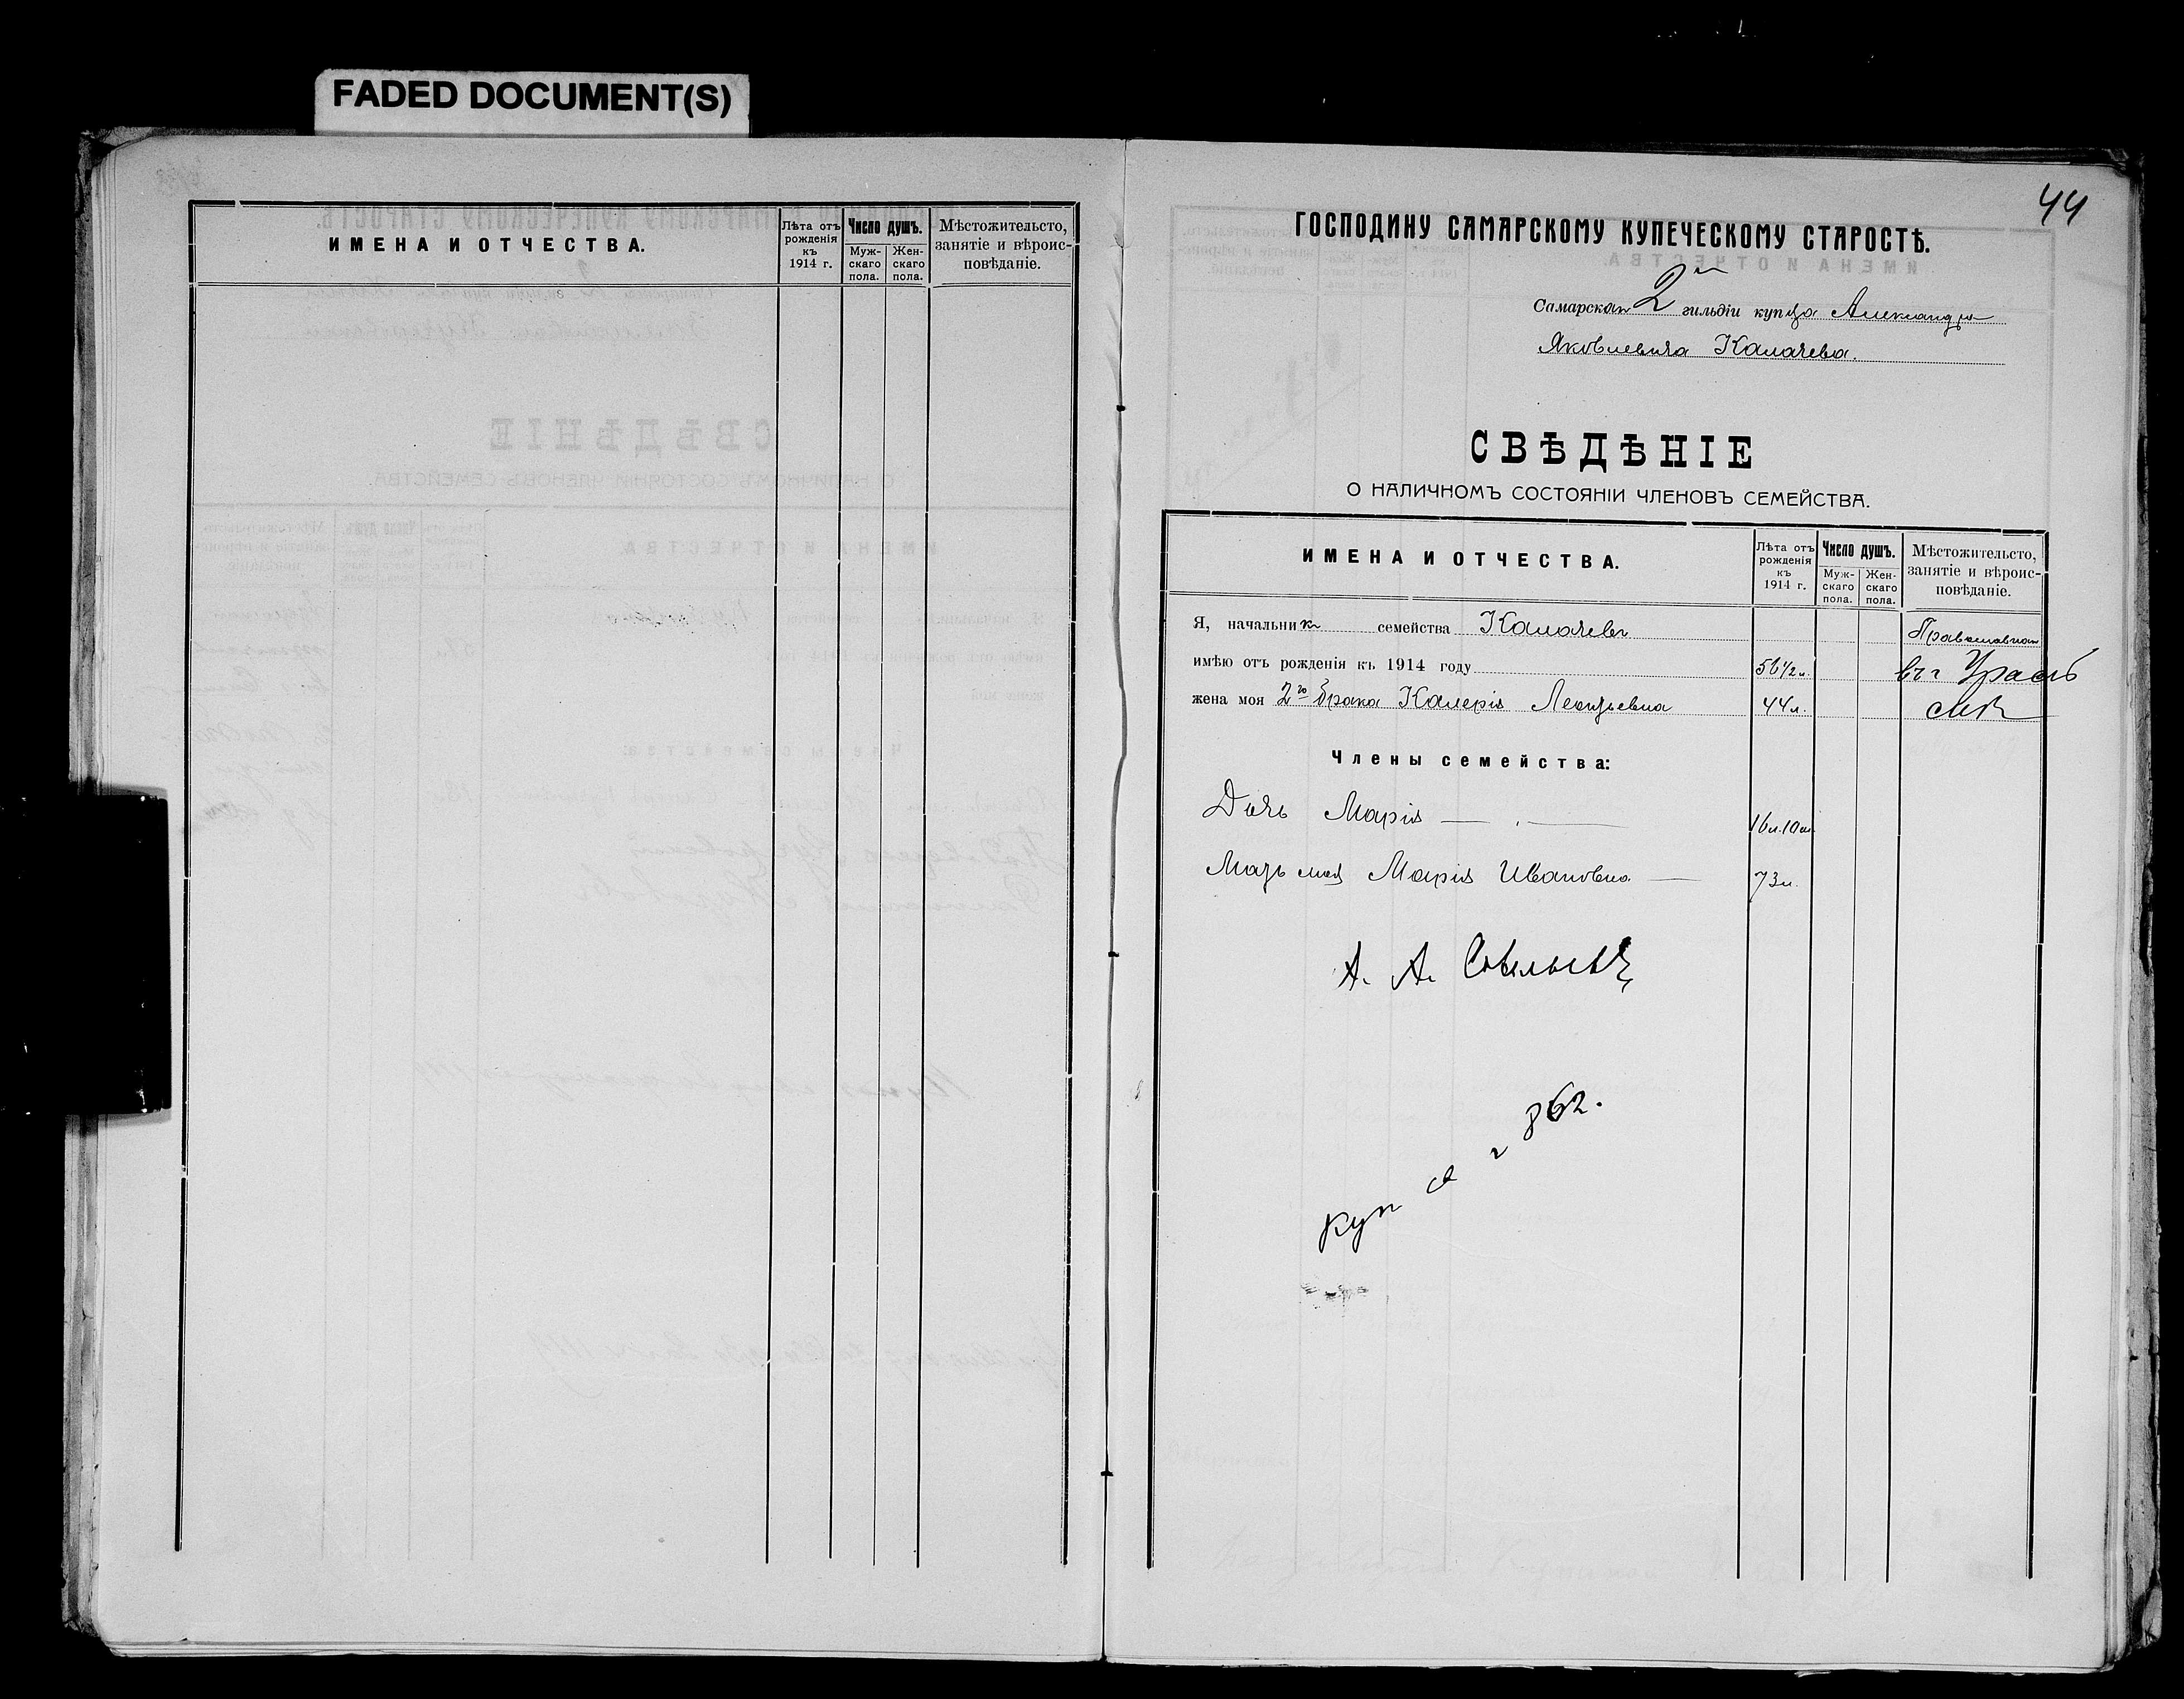 FADED DOCUMENT(S)
ИМЕНА И ОТЧЕСТВА.
Лѣта отъ рожденія къ 1914 г.
Число душъ.
Мужскаго пола.
Женскаго пола.
Мѣстожительсто, занятіе и вѣроисповѣданіе.
44
ГОСПОДИНУ САМАРСКОМУ КУПЕЧЕСКОМУ СТАРОСТѢ.
Самарскаго 2й гильдіи купца Александра
Яковлевича Калачева.
СВѢДѢНІЕ
О НАЛИЧНОМЪ СОСТОЯНІИ ЧЛЕНОВЪ СЕМЕЙСТВА.
ИМЕНА И ОТЧЕСТВА.
Лѣта отъ рожденія къ 1914 г.
Число душъ.
Мужскаго пола.
Женскаго пола.
Мѣстожительсто, занятіе и вѣроисповѣданіе.
Я, начальникъ семейства Калачевъ Православнаго
имѣю отъ рожденія къ 1914 году 56 1/2 л. въ г Ураль
жена моя 2го брака Калерія Леонтьевна 44 л. скѣ
Члены семейства:
Дочь Марія 16 л. 10 м.
Мать моя Марія Ивановна 73 л.
А. А.
куп с г 862.